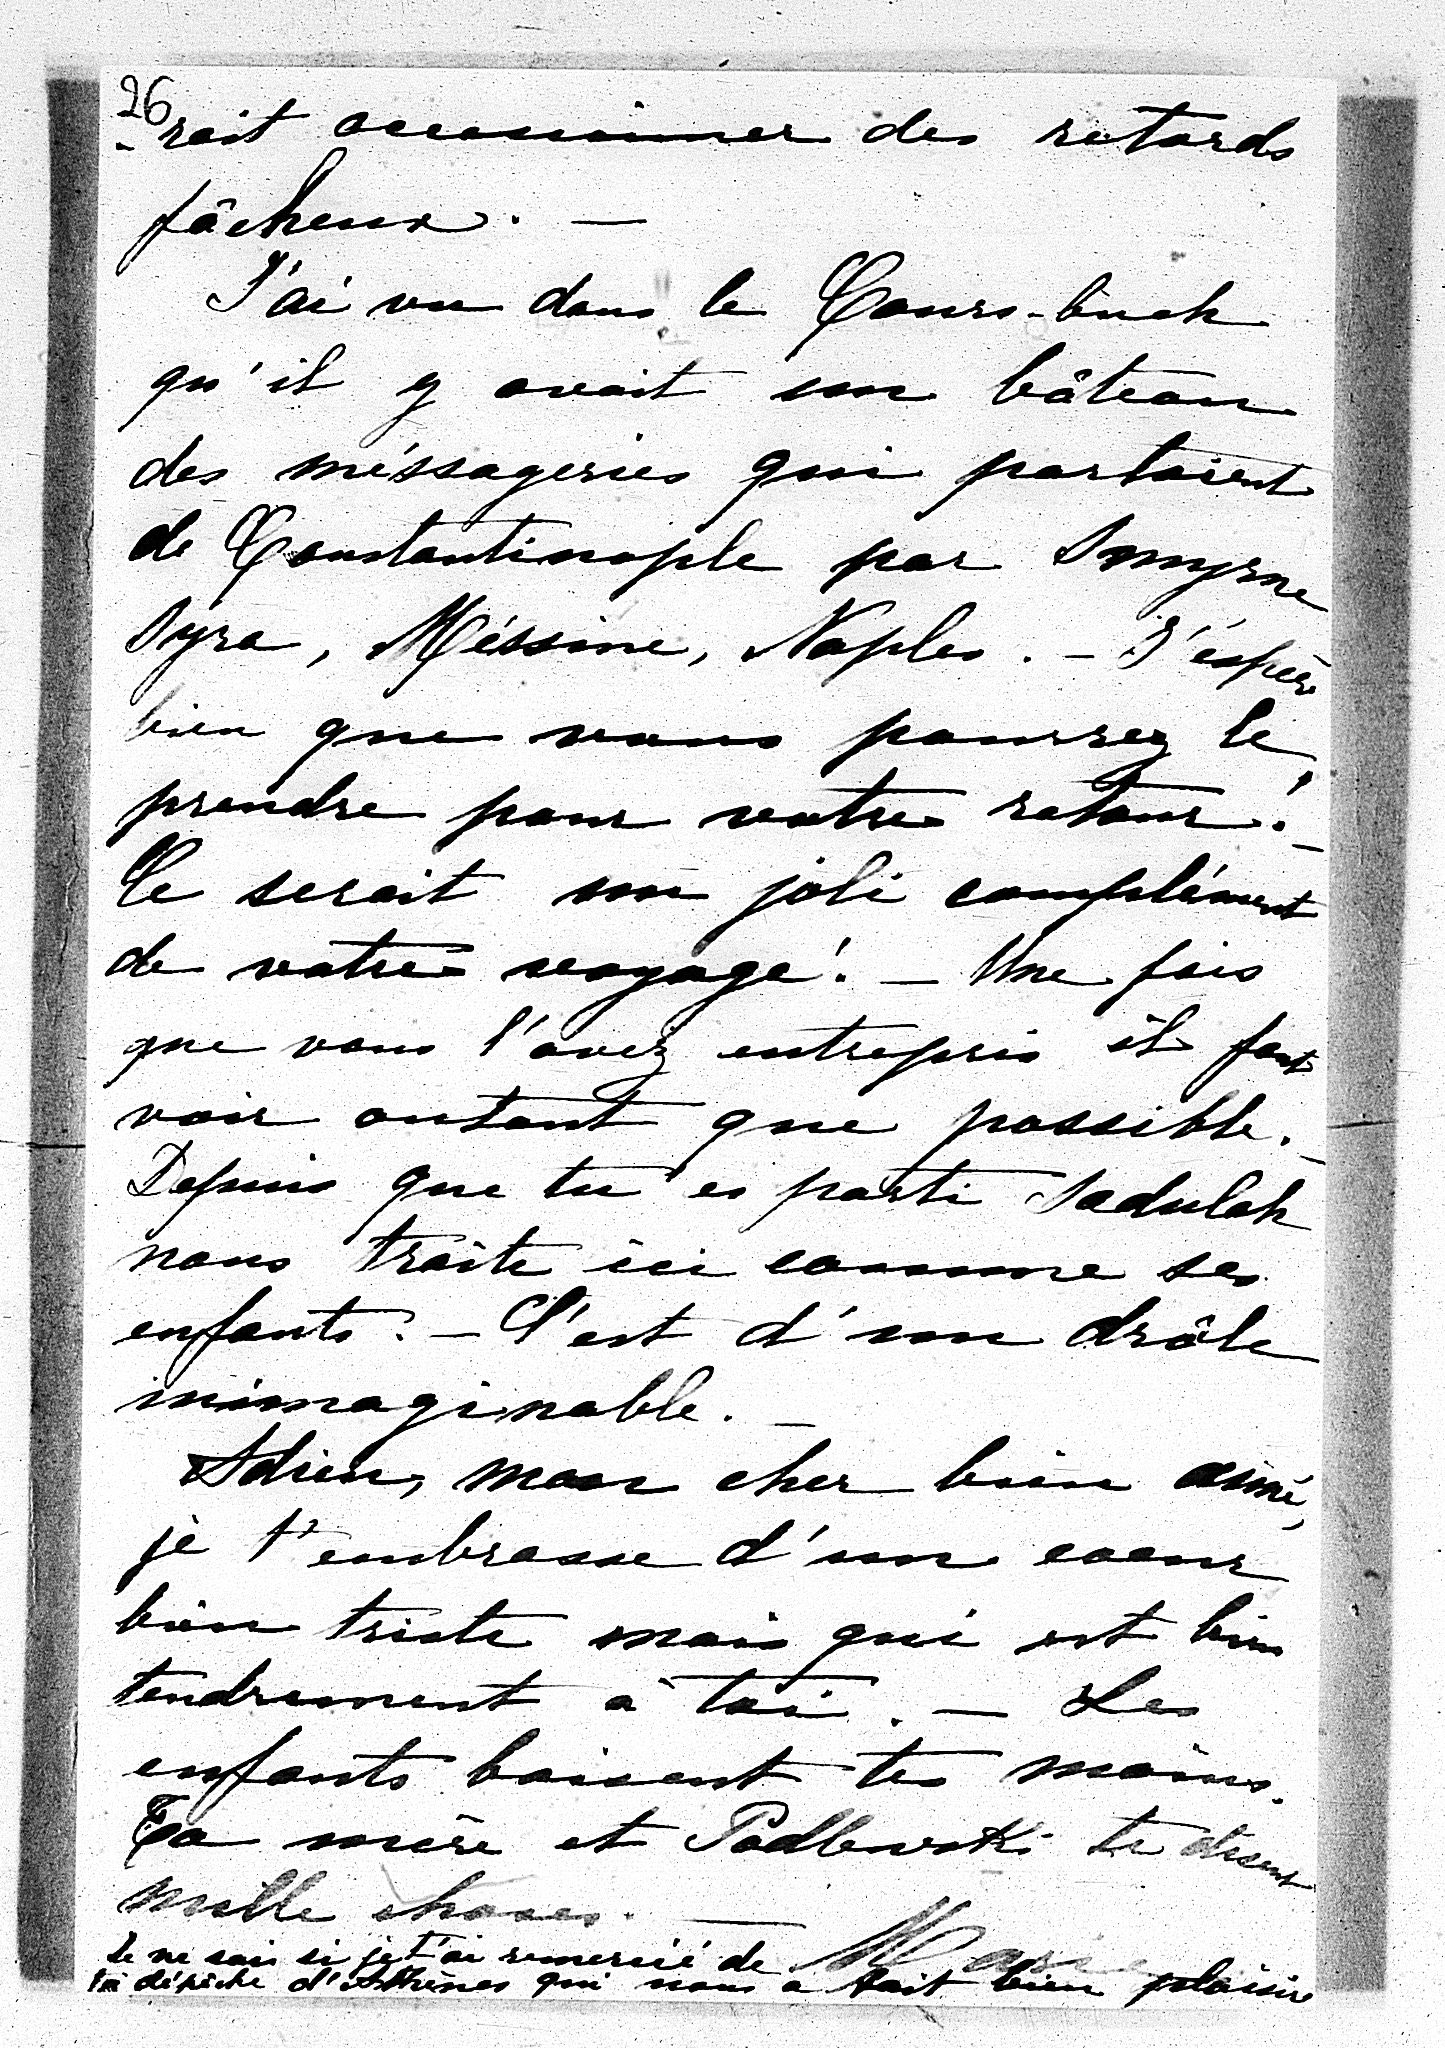 26
- rait occassionner des retards
fâcheux. —
J'ai vu dans le Cours-buch
qu'il y avait un bâteau
des méssageries qui partaient
de Constantinople par Smyrne
Syra, Méssine, Naples. — J'éspère
bien que vous pourrez le
prendre pour votre retour! —
Ce serait un joli complément
de votre voyage! — Une fois
que vous l'avez entrepris il faut
voir autant que possible. —
Depuis que tu es parti Sadulah
nous traite ici comme ses
enfants. — C'est d'un drôle
inimaginable. —
Adieu, mon cher bien aimé,
je t'embrasse d'un coeur
bien triste mais qui est bien
tendrement à toi. — Les
enfants baisent tes mains.
Ta mère et Podlewski te disent
mille choses. — Marie
Je ne sais si je t'ai remercié de
ta dépêche d'Athènes qui nous a fait bien plaisir